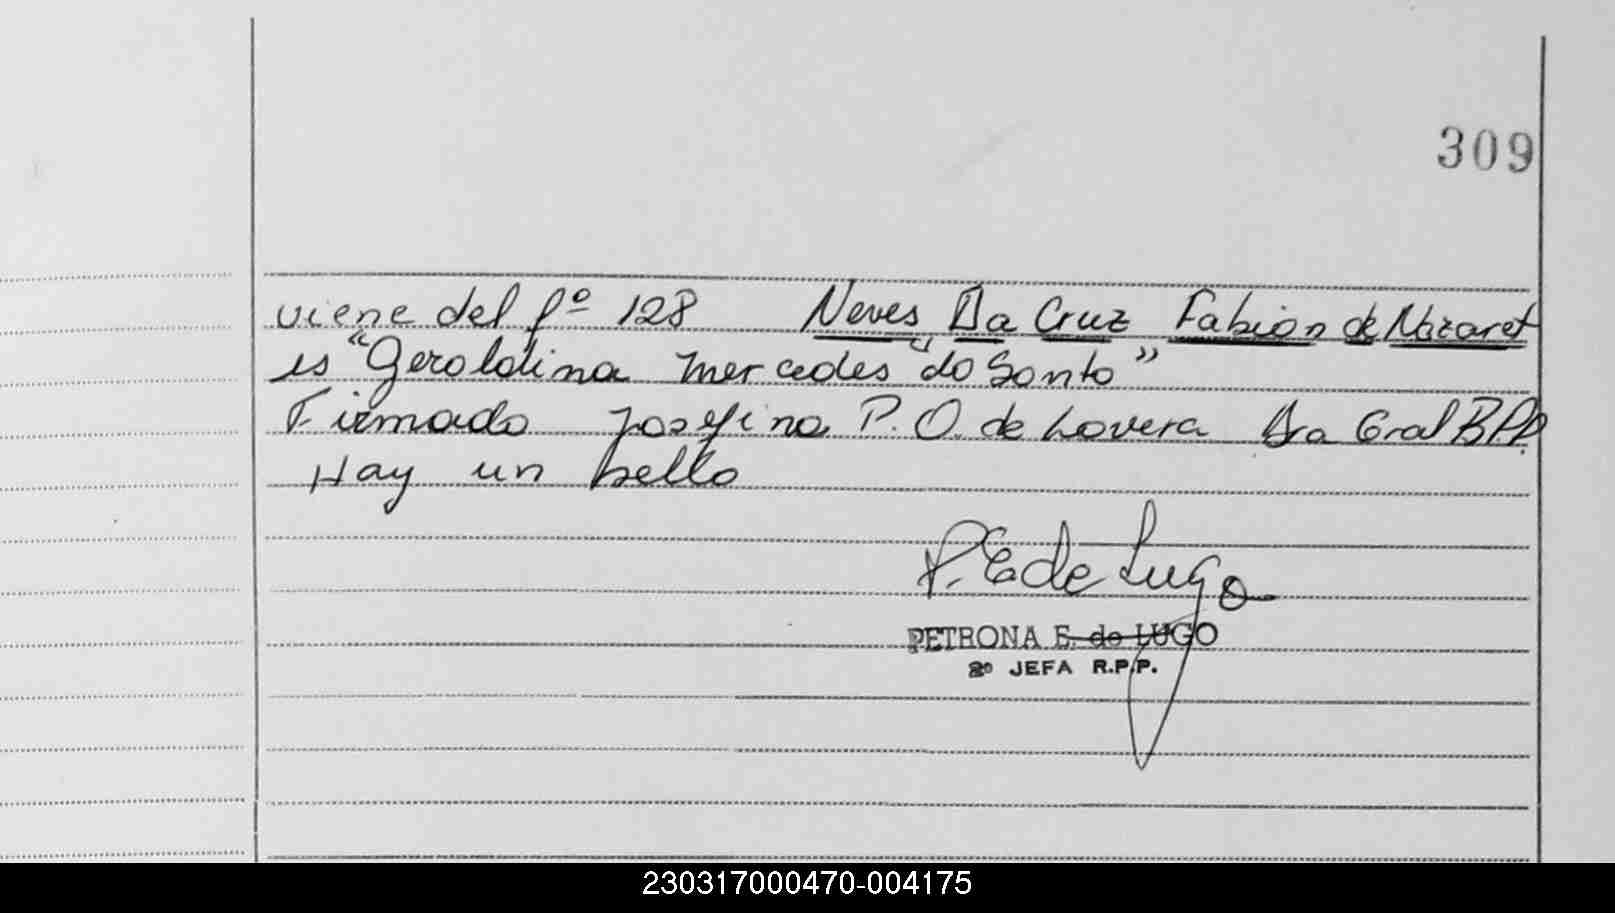 309
viene del fº 128 Neves Da Cruz Fabian de Nazaret
es "Geraldina Mercedes "do Santo"
Firmado Josefina P. O. de Lovera Dra Gral B.P.P.
Hay un sello
P. E de Lugo
PETRONA E. de LUGO
2º JEFA R.P.P.
230317000470-004175